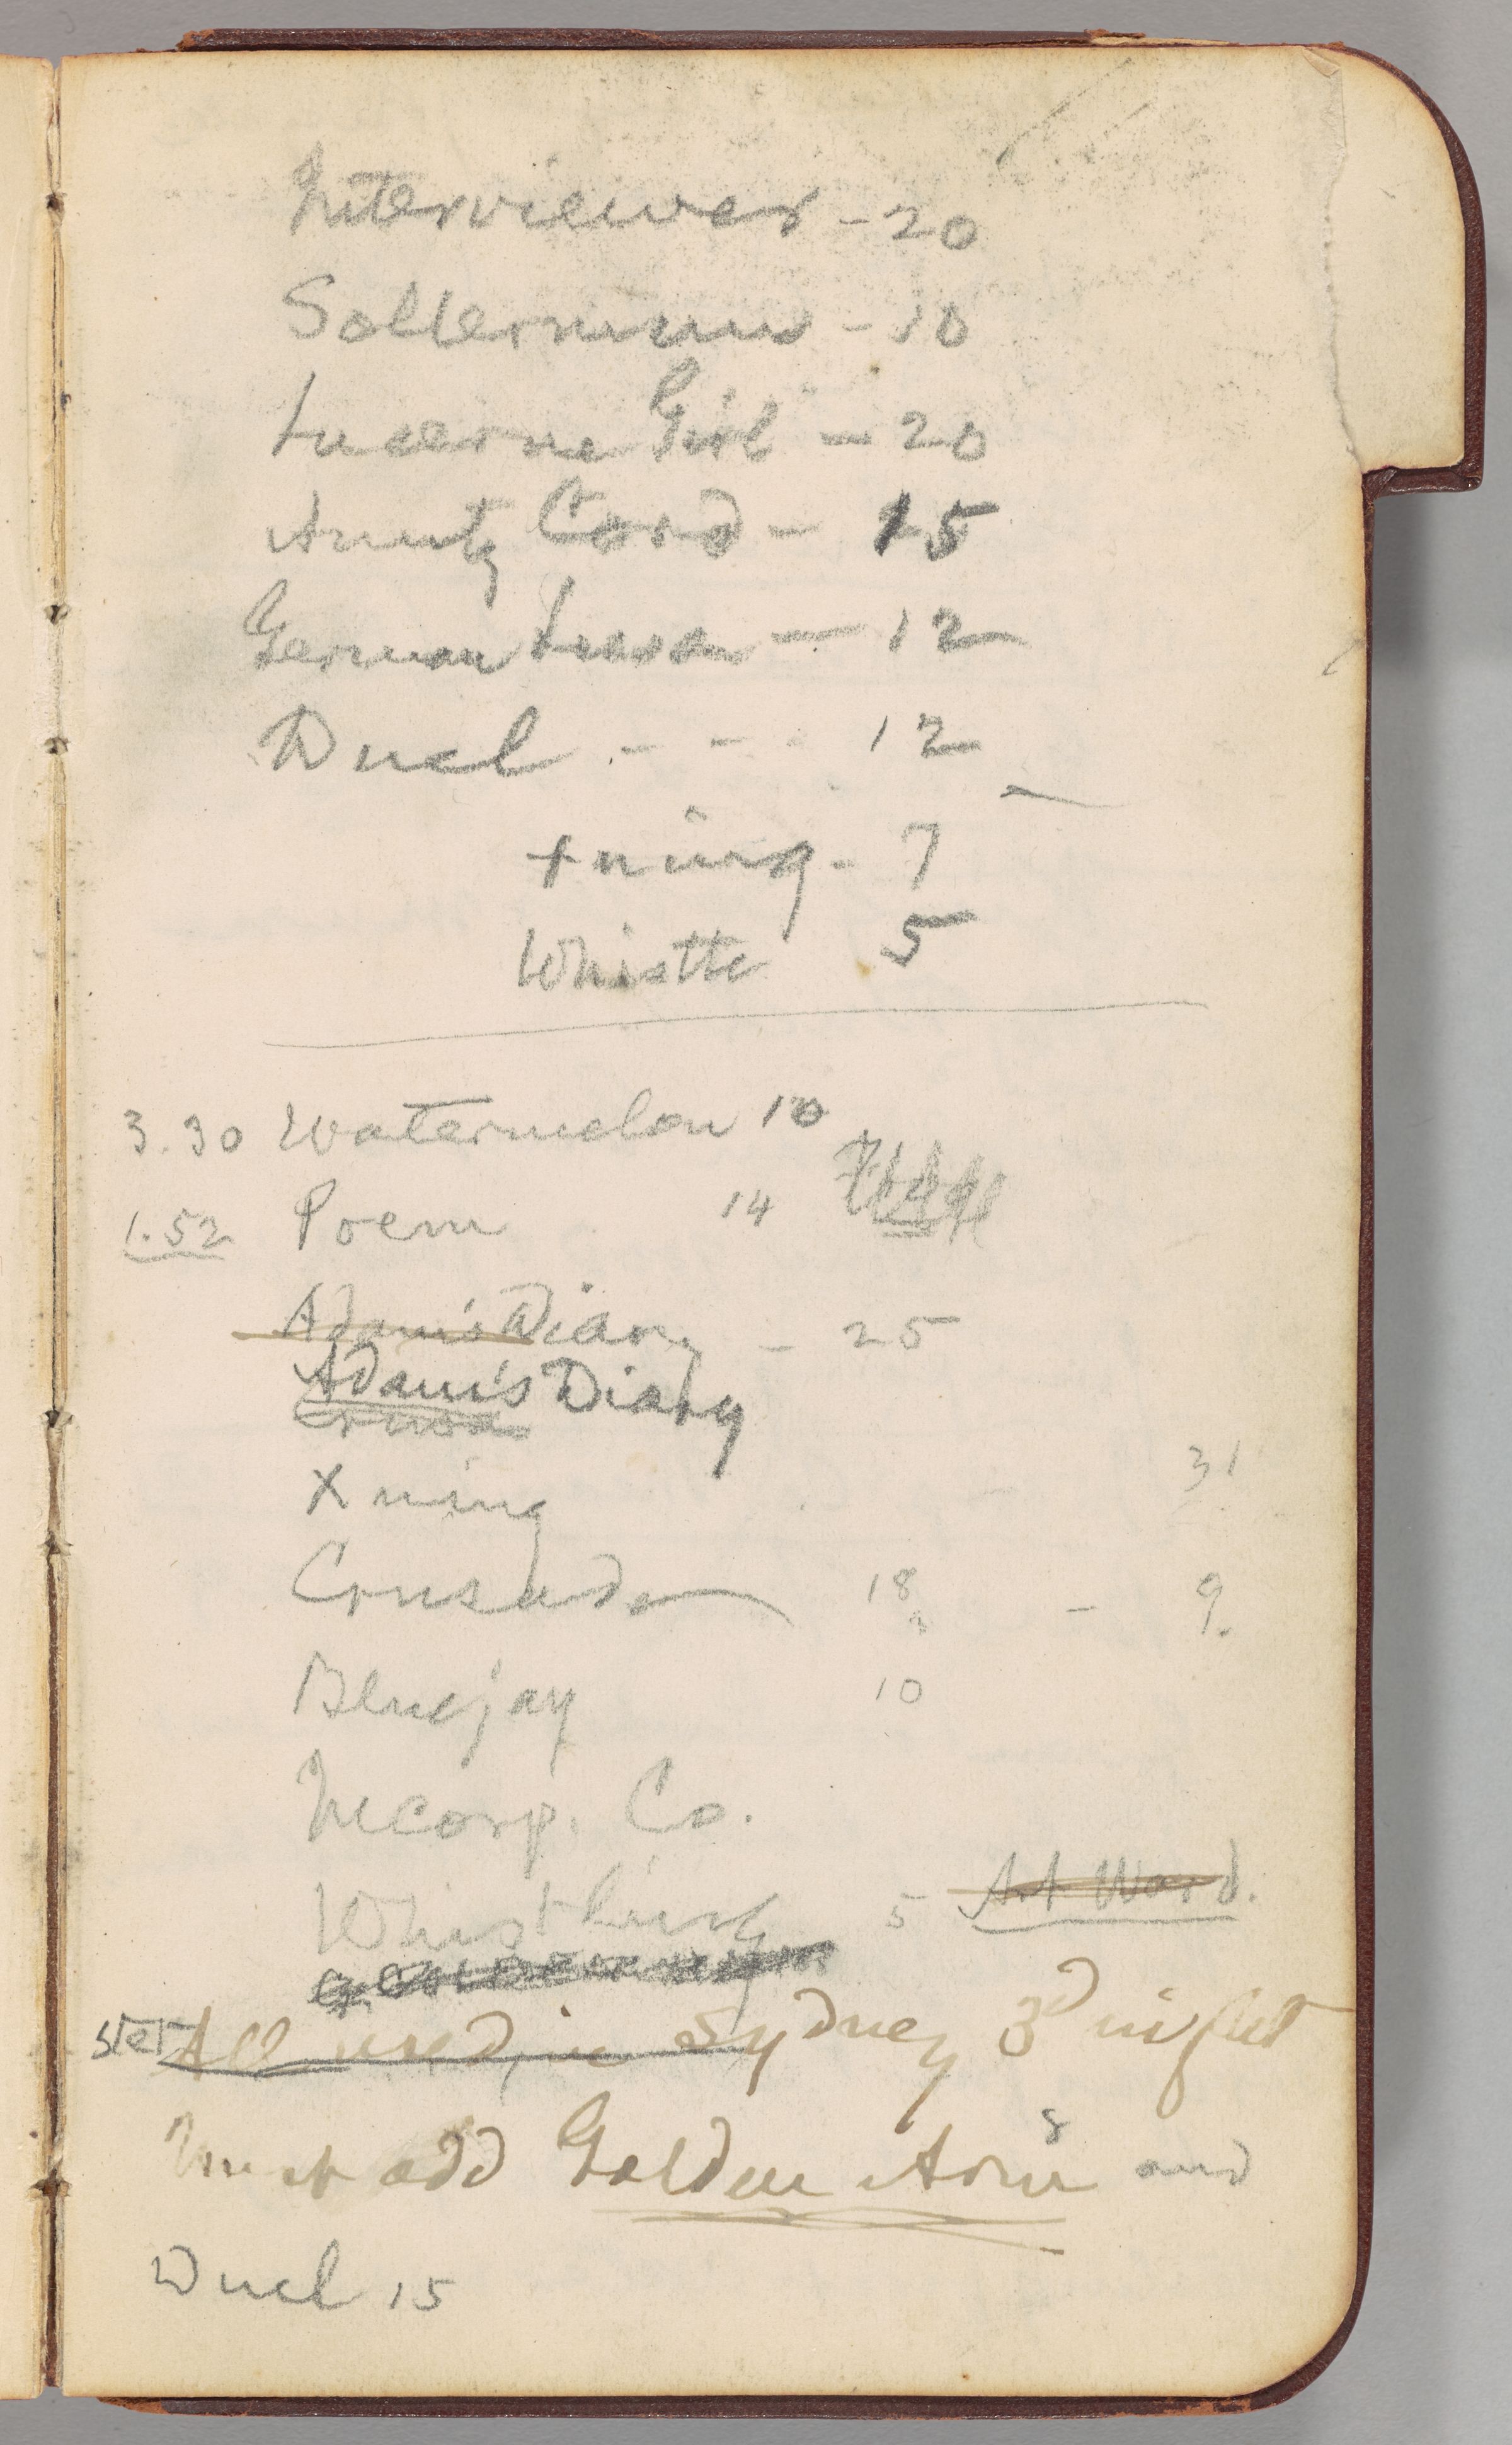 Interviewer – 20
Sollermun – 10
Lucerne Girl – 20
Aunty Cord – 15
German Lesson – 12
Duel - - - 12
Xning - 7
Whistle 5
3.30 Watermelon 10
1.52 Poem 14
Adam's Diary – 25
Adam's Diary
Xning 31
Crusade 18 – 9.
3
Bluejay 10
Incorp. Co.
Whistling 5 A. Ward.
Stet All used in Sydney 3d night
Must add Golden Arm 8 and
Duel 15